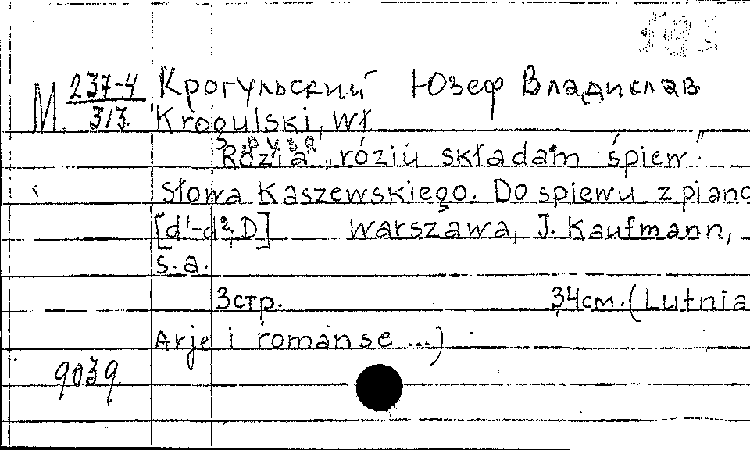 М. 237-4/313. Крогульский Юзеф Владислав
Krogulski, Wł
"Rózia, róziu składam śpiew."
Słowa Kaszewskiego. Do śpiewu z piano
[d¹-d²,D] Warszawa, J. Kaufmann,
s.a.
3стр. 34см. (Lutnia
Arje i romanse ...)
9039